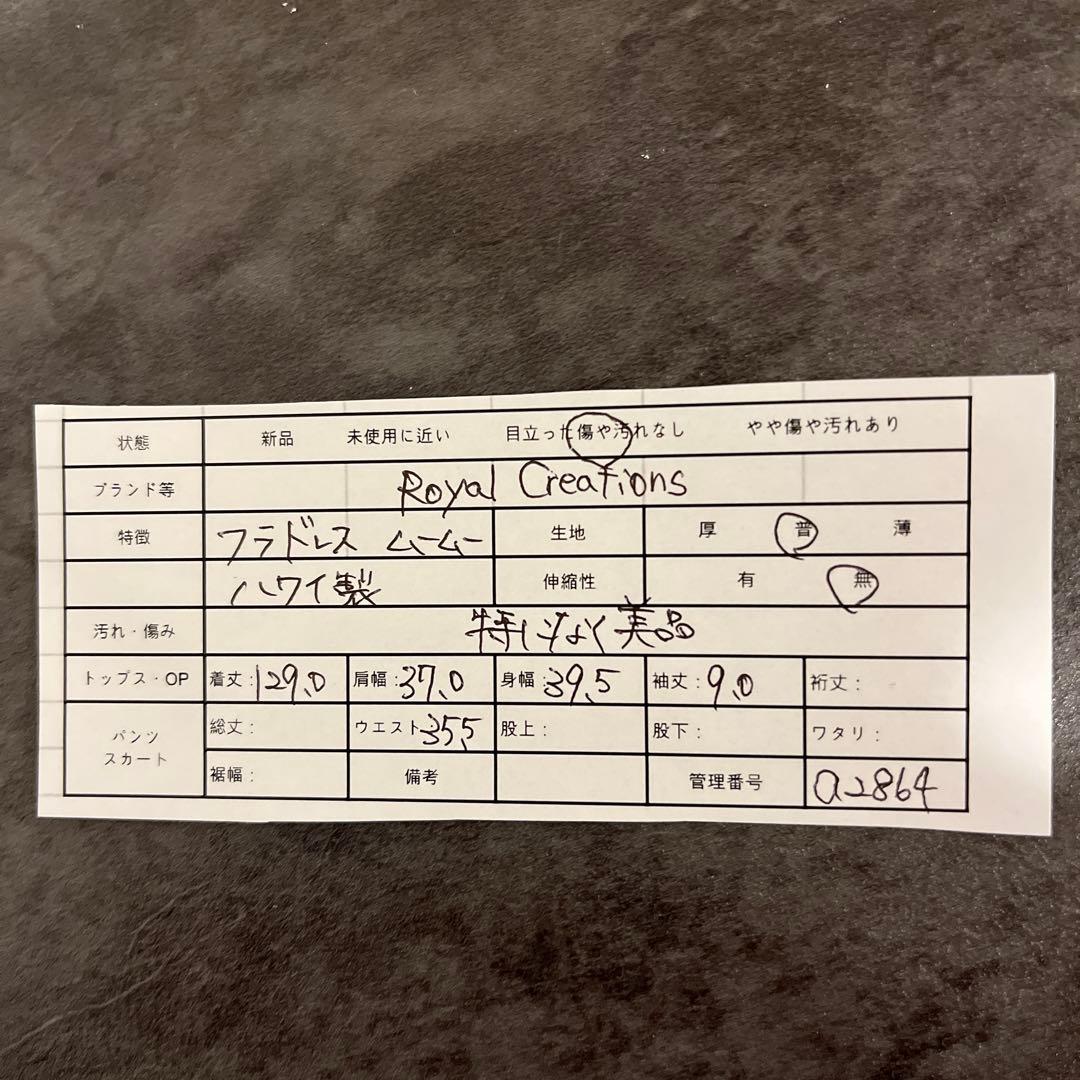 状態 新品 未使用に近い 目立った傷や汚れなし やや傷や汚れあり
ブランド等 Royal Creations
特徴 フラドレス ムームー 生地 厚 普 薄
ハワイ製 伸縮性 有 無
汚れ・傷み 特になく美品
トップス・OP 着丈:129.0 肩幅:37.0 身幅:39.5 袖丈:9.0 裄丈:
パンツ スカート 総丈: ウエスト35.5 股上: 股下: ワタリ:
裾幅: 備考 管理番号 a2864